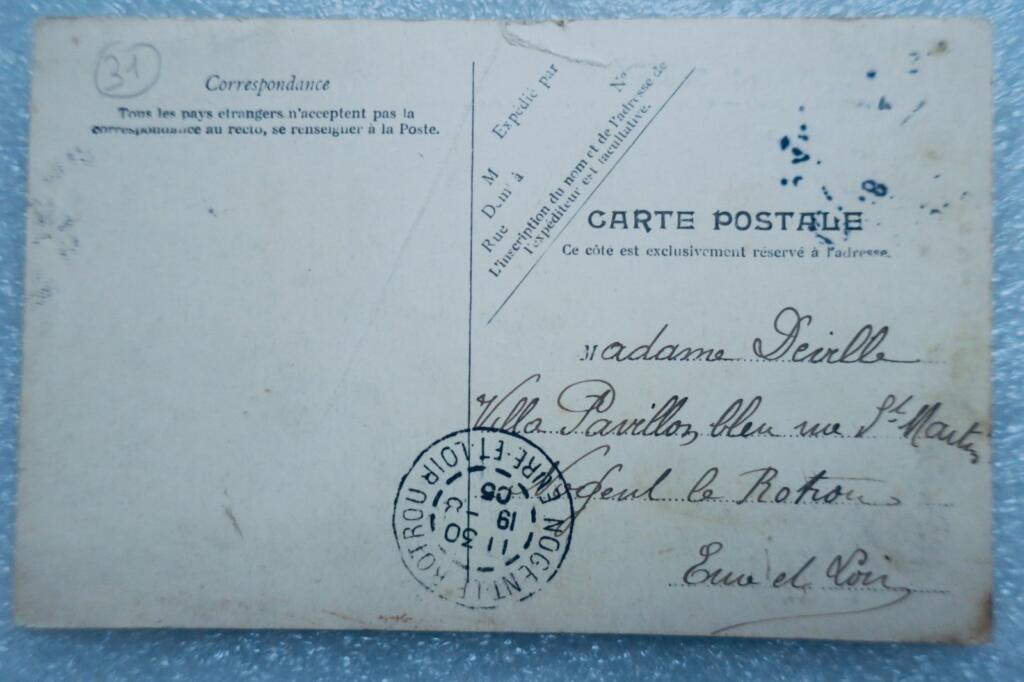 31
Correspondance
Tous les pays etrangers n'acceptent pas la
correspondance au recto, se renseigner à la Poste.
Expédié par
M
Demt à
Rue No
L'inscription du nom et de l'adresse de
l'expéditeur est facultative.
CARTE POSTALE
Ce côté est exclusivement réservé à l'adresse.
Madame Deville
Villa Pavillon bleu rue St Martin
Nogent le Rotrou
Eure et Loir
NOGENT-LE-ROTROU EURE-ET-LOIR
11 30
19
05
8